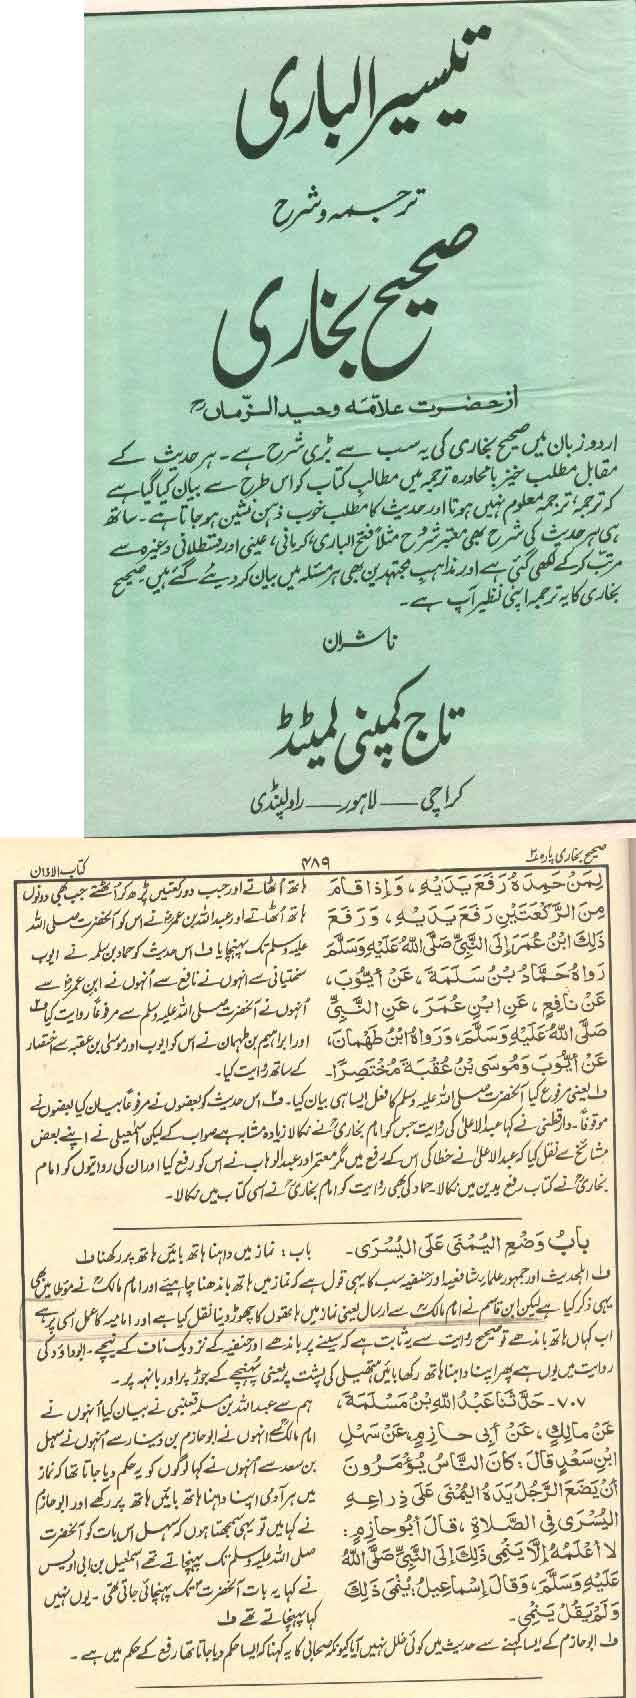 تیسیر الباری
ترجمہ و شرح
صحیح بخاری
از حضرت علامہ وحید الزماں رح
اردو زبان میں صحیح بخاری کی یہ سب سے بڑی شرح ہے۔ ہر حدیث کے
مقابل مطلب خیز بامحاورہ ترجمہ میں مطالب کتاب کو اس طرح سے بیان کیا گیا ہے
کہ ترجمہ، ترجمہ معلوم نہیں ہوتا اور حدیث کا مطلب خوب ذہن نشین ہو جاتا ہے۔ ساتھ
ہی ہر حدیث کی شرح بھی معتبر شروح مثلاً فتح الباری، کرمانی، عینی اور قسطلانی وغیرہ سے
مرتب کر کے لکھی گئی ہے اور مذاہب مجتہدین بھی ہر مسئلہ میں بیان کر دیئے گئے ہیں صحیح
بخاری کا یہ ترجمہ اپنی نظیر آپ ہے۔
ناشران
تاج کمپنی لمیٹڈ
کراچی — لاہور — راولپنڈی
صحیح بخاری پارہ ۳
۴۸۹
کتاب الاذان
لِمَنْ حَمِدَهُ رَفَعَ يَدَيْهِ، وَإِذَا قَامَ
مِنَ الرَّكْعَتَيْنِ رَفَعَ يَدَيْهِ، وَرَفَعَ
ذَلِكَ ابْنُ عُمَرَ إِلَى النَّبِيِّ صَلَّى اللهُ عَلَيْهِ وَسَلَّمَ
رَوَاهُ حَمَّادُ بْنُ سَلَمَةَ، عَنْ أَيُّوبَ،
عَنْ نَافِعٍ، عَنِ ابْنِ عُمَرَ، عَنِ النَّبِيِّ
صَلَّى اللهُ عَلَيْهِ وَسَلَّمَ، وَرَوَاهُ ابْنُ طَهْمَانَ،
عَنْ أَيُّوبَ وَمُوسَى بْنِ عُقْبَةَ مُخْتَصَرًا۔
ہاتھ اٹھاتے اور جب دو رکعتیں پڑھ کر اٹھتے جب بھی دونوں
ہاتھ اٹھاتے اور عبداللہ بن عمرؓ نے اس کو آنحضرت صلی اللہ
علیہ وسلم تک پہنچایا ف۱ اس حدیث کو حماد بن سلمہ نے ایوب
سختیانی سے انہوں نے نافع سے انہوں نے ابن عمرؓ سے
انہوں نے آنحضرت صلی اللہ علیہ وسلم سے مرفوعاً روایت کیا ف۲
اور ابراہیم بن طہمان نے اس کو ایوب اور موسیٰ بن عقبہ سے اختصار
کے ساتھ روایت کیا۔
ف۱ یعنی مرفوع کیا آنحضرت صلی اللہ علیہ وسلم کا فعل ایسا ہی بیان کیا۔ ف۲ اس حدیث کو بعضوں نے مرفوعاً بیان کیا بعضوں نے
موقوفاً۔ دارقطنی نے کہا عبدالاعلیٰ کی روایت جس کو امام بخاریؒ نے نکالا زیادہ مشابہ ہے صواب کے لیکن اسمٰعیلی نے اپنے بعض
مشائخ سے نقل کیا کہ عبدالاعلیٰ نے خطا کی اس کے رفع میں مگر معتمر اور عبدالوہاب نے اس کو رفع کیا اور ان کی روایتوں کو امام
بخاریؒ نے کتاب رفع یدین میں نکالا۔ حماد کی بھی روایت کو امام بخاریؒ نے اسی کتاب میں نکالا۔
بَابُ وَضْعِ الْيُمْنَى عَلَى الْيُسْرَى۔
باب: نماز میں داہنا ہاتھ بائیں ہاتھ پر رکھنا ف۱
ف۱ اہلحدیث اور جمہور علماء شافعیہ اور حنفیہ سب کا یہی قول ہے کہ نماز میں ہاتھ باندھنا چاہیئے اور امام مالکؒ نے مؤطا میں بھی
یہی ذکر کیا ہے لیکن ابن قاسم نے امام مالکؒ سے ارسال یعنی نماز میں ہاتھوں کا چھوڑ دینا نقل کیا ہے اور امامیہ کا عمل اسی پر ہے
اب کہاں ہاتھ باندھے تو صحیح روایت سے یہ ثابت ہے کہ سینے پر باندھے اور حنفیہ کے نزدیک ناف کے نیچے۔ ابوداؤد کی
روایت میں یوں ہے پھر اپنا داہنا ہاتھ رکھا بائیں ہتھیلی کی پشت پر یعنی پہنچے کے جوڑ پر اور بانہہ پر۔
۷۰۷- حَدَّثَنَا عَبْدُ اللهِ بْنُ مَسْلَمَةَ،
عَنْ مَالِكٍ، عَنْ أَبِي حَازِمٍ، عَنْ سَهْلِ
ابْنِ سَعْدٍ قَالَ: كَانَ النَّاسُ يُؤْمَرُونَ
أَنْ يَضَعَ الرَّجُلُ يَدَهُ الْيُمْنَى عَلَى ذِرَاعِهِ
الْيُسْرَى فِي الصَّلَاةِ، قَالَ أَبُو حَازِمٍ:
لَا أَعْلَمُهُ إِلَّا يَنْمِي ذَلِكَ إِلَى النَّبِيِّ صَلَّى اللهُ
عَلَيْهِ وَسَلَّمَ، وَقَالَ إِسْمَاعِيلُ: يُنْمَى ذَلِكَ
وَلَمْ يَقُلْ يَنْمِي۔
ہم سے عبداللہ بن مسلمہ قعنبی نے بیان کیا انہوں نے
امام مالکؒ سے انہوں نے ابوحازم بن دینار سے انہوں نے سہل
بن سعد سے انہوں نے کہا لوگوں کو یہ حکم دیا جاتا تھا کہ نماز
میں ہر آدمی اپنا داہنا ہاتھ بائیں ہاتھ پر رکھے اور ابوحازم
نے کہا میں تو یہی سمجھتا ہوں کہ سہل اس بات کو آنحضرت
صلی اللہ علیہ وسلم تک پہنچاتے تھے اسمٰعیل بن ابی اویس
نے کہا یہ بات آنحضرتؐ تک پہنچائی جاتی تھی۔ یوں نہیں
کہا پہنچاتے تھے ف۱
ف۱ ابوحازم کے ایسا کہنے سے حدیث میں کوئی خلل نہیں آیا کیونکہ صحابی کا یہ کہنا کہ ایسا حکم دیا جاتا تھا رفع کے حکم میں ہے۔